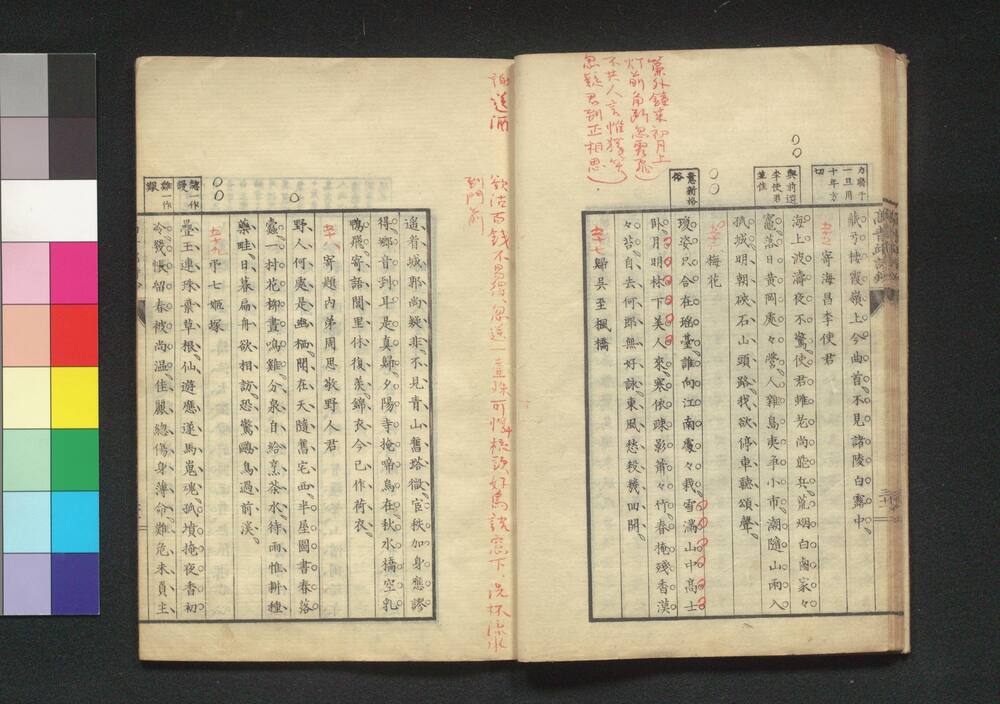 簾外鐘來初月上
灯前角断忽霜飛
不共人言惟獨笑
忽疑君到正相思
力勝千
一旦用
十年方
切
與前選
李使君
並佳
意新格
俗
藏弓挂霞嶺上今曲首不見諸陵白露中
寄海昌李使君
海上波濤夜不驚使君雖老尚能兵荒烟白鹵家々
竈落日黄岡處々營人雜島夷爭小市潮隨山雨入
孤城明朝硤石山頭路我欲停車聽頌聲
梅花
瓊姿只合在瑤臺誰向江南處々栽雪滿山中高士
臥月明林下美人來寒依疎影蕭々竹春掩殘香漠
々苔自去何郎無好詠東風愁寂幾回開
五十七
歸吳至楓橋
謝送酒
欲沽百錢不易得忽送一壺殊可憐梳頭好鳥語窓下洗杯流水
到門前
遥看城郭尚疑非不見青山舊塔微官秩加身應謬
得鄉音到耳是真歸夕陽寺掩啼烏在秋水橋空乳
鴨飛寄語閭里休復羨錦衣今已作荷衣
寄題内弟周思敬野人居
野人何處是幽栖聞在天隨舊宅西半屋圖書春落
蠹一村花柳晝鳴雞分泉自給烹茶水待雨惟耕種
藥畦日暮扁舟欲相訪恐驚鷗鳥過前溪
五十九
弔七姬塚
一作
疊玉連珠棄草根仙遊應逐馬嵬魂孤墳掩夜香初
冷幾帳留春被尚温佳麗總傷身薄命難危未負主